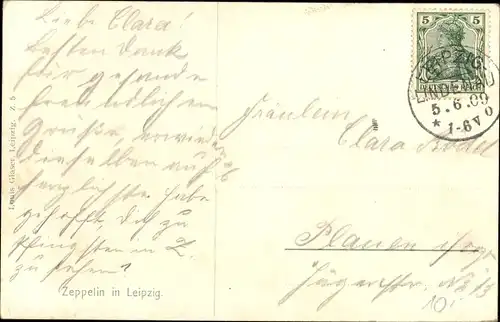 Liebe Clara!
Besten Dank
für gesandte
freundlichen
Grüße, erwiedre
dieselben auf
herzlichste. Habe
gehofft, Dich zu
Pfingsten in L.
zu sehen?
Louis Glaser, Leipzig.
Zeppelin in Leipzig.
5 5
DEUTSCHES REICH
LEIPZIG
LINDENAU
5.6.09
* 1-6 V
Fräulein
Clara
Plauen
Jägerstr. No